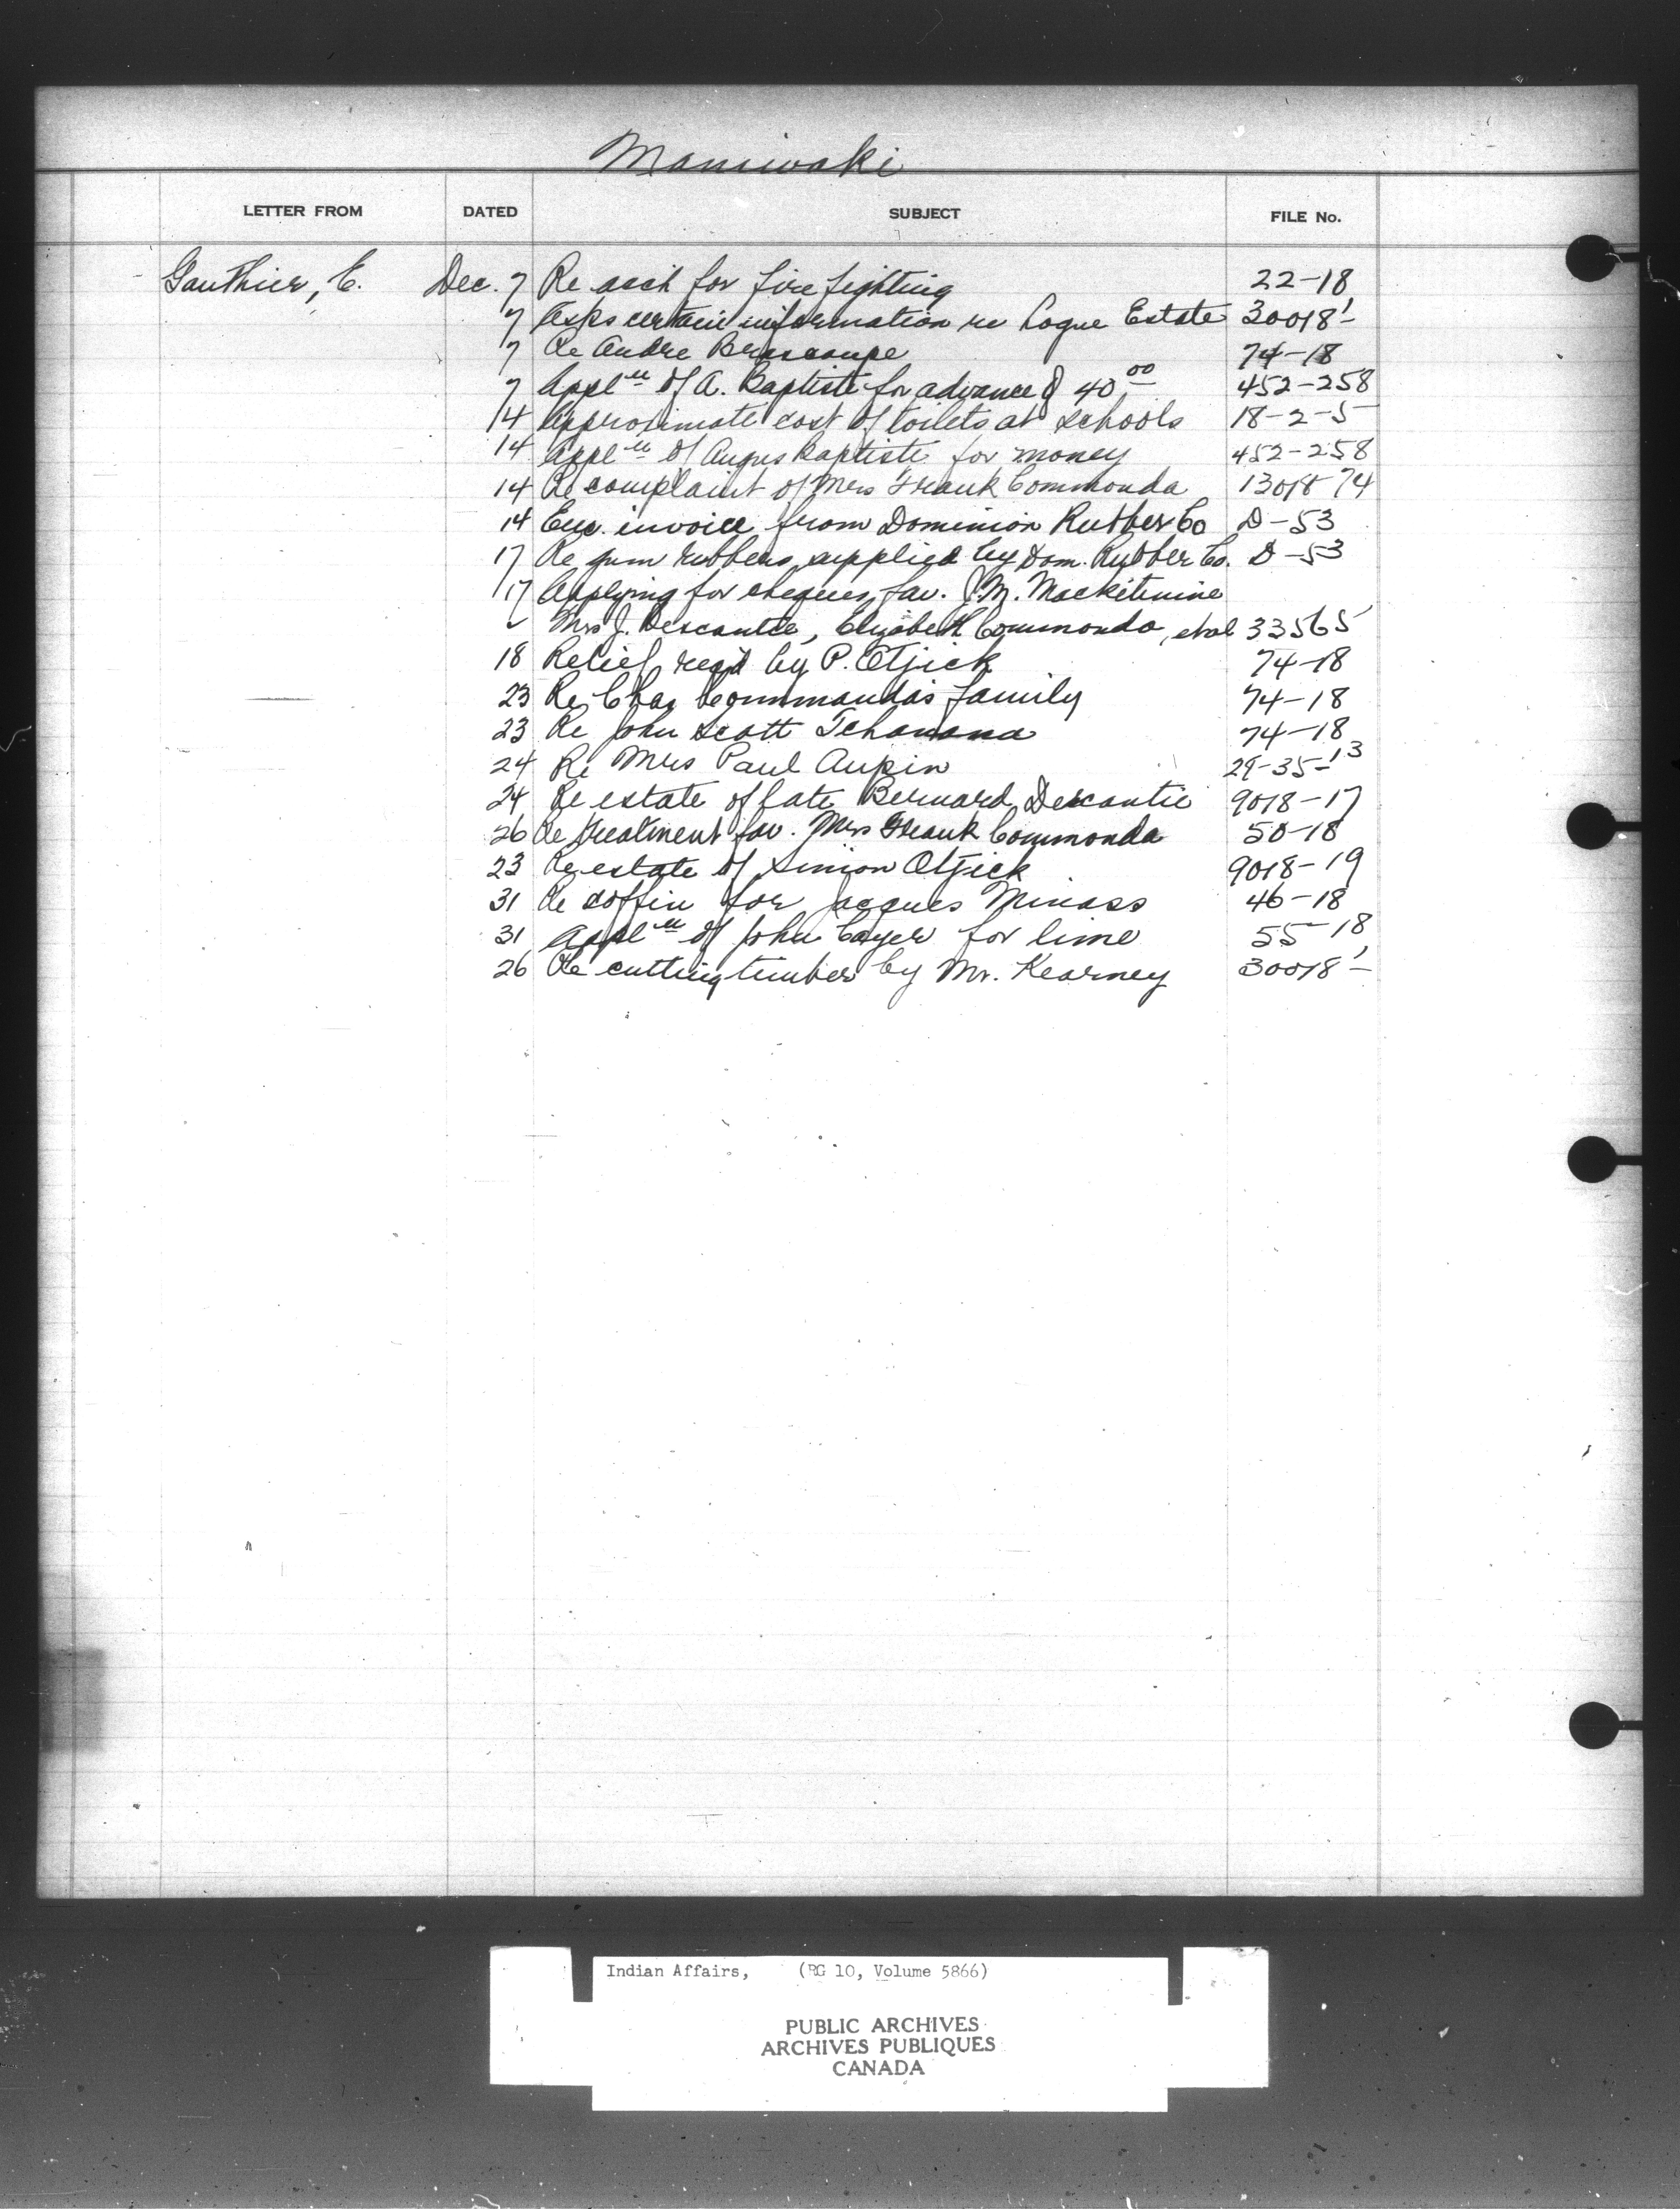 Maniwaki
LETTER FROM DATED SUBJECT FILE No.
Gauthier, E. Dec. 7 Re acct for fire fighting 22-18
7 Asks certain information re Logue Estate 30018-1
7 Re Andre Brascoupe 74-18
7 Appl'n of A. Baptiste for advance of 40.00 452-258
14 Approximate cost of toilets at schools 18-2-5
14 Appl'n of Angus Baptiste for money 452-258
14 Re complaint of Mrs Frank Commonda 13018-74
14 Enc. invoice from Dominion Rubber Co D-53
17 Re gum rubbers supplied by Dom. Rubber Co. D-53
17 Applying for cheques fav. J.M. Mackitimine
Mrs J. Descantie, Elizabeth Commondo, et al 33565
18 Relief req'd by P. Otjick 74-18
23 Re Chas Commanda's family 74-18
23 Re John Scott 74-18
24 Re Mrs Paul Aupin 29-35-13
24 Re estate of late Bernard Descantie 9018-17
26 Re treatment fav. Mrs Frank Commonda 50-18
23 Re estate of Simon Otjick 9018-19
31 Re coffin for Jacques Minass 46-18
31 Appl'n of John Cayer for lime 55-18
26 Re cutting timber by Mr. Kearney 30018-1
Indian Affairs, (RG 10, Volume 5866)
PUBLIC ARCHIVES
ARCHIVES PUBLIQUES
CANADA